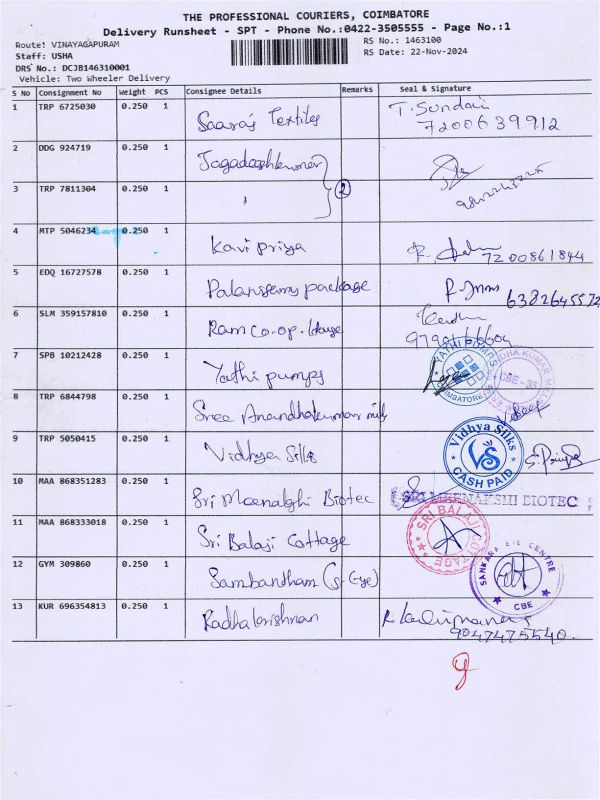 THE PROFESSIONAL COURIERS, COIMBATORE
Delivery Runsheet - SPT - Phone No.:0422-3505555 - Page No.:1
Route: VINAYAGAPURAM RS No.: 1463100
Staff: USHA RS Date: 22-Nov-2024
DRS No.: DCJB146310001
Vehicle: Two Wheeler Delivery
S No Consignment No Weight PCS Consignee Details Remarks Seal & Signature
1 TRP 6725030 0.250 1 Saaras Textiles T. Sundari
7200639912
2 DDG 924719 0.250 1 Jagadeshkumar
3 TRP 7811304 0.250 1 " 2
4 MTP 5046234 0.250 1 Kavipriya 7200861844
5 EDQ 16727578 0.250 1 Palanisamy package 6382645572
6 SLM 359157810 0.250 1 Ram co-op.
7 SPB 10212428 0.250 1 Yathi pumps YATHI PUMPS COIMBATORE
CBE-35
8 TRP 6844798 0.250 1 Sree Anandhakumar mills
9 TRP 5050415 0.250 1 Vidhya Silks Vidhya Silks VS CASH PAID S. Priya
10 MAA 868351283 0.250 1 Sri Meenakshi Biotec SRI MEENAKSHI BIOTEC
11 MAA 868333018 0.250 1 Sri Balaji Cottage SRI BALAJI COTTAGE
12 GYM 309860 0.250 1 Sambandham (S. Eye) SANKARA EYE CENTRE CBE
13 KUR 696354813 0.250 1 Radhakrishnan
9047475540